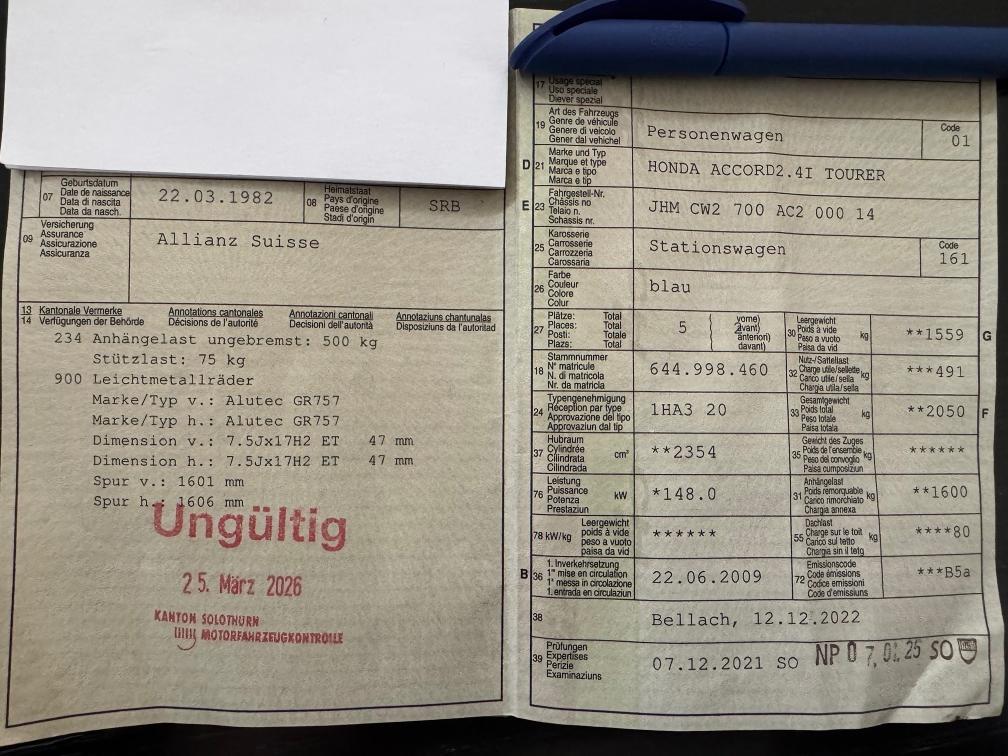 07 Geburtsdatum
Date de naissance
Data di nascita
Data da nasch.
22.03.1982
08 Heimatstaat
Pays d'origine
Paese d'origine
Stadi d'origin
SRB
09 Versicherung
Assurance
Assicurazione
Assicuranza
Allianz Suisse
13 Kantonale Vermerke Annotations cantonales Annotazioni cantonali Annotaziuns chantunalas
14 Verfügungen der Behörde Décisions de l'autorité Decisioni dell'autorità Disposiziuns da l'autoritad
234 Anhängelast ungebremst: 500 kg
Stützlast: 75 kg
900 Leichtmetallräder
Marke/Typ v.: Alutec GR757
Marke/Typ h.: Alutec GR757
Dimension v.: 7.5Jx17H2 ET 47 mm
Dimension h.: 7.5Jx17H2 ET 47 mm
Spur v.: 1601 mm
Spur h.: 1606 mm
Ungültig
25. März 2026
KANTON SOLOTHURN
MOTORFAHRZEUGKONTROLLE
17 Usage spécial
Uso speciale
Diever spezial
19 Art des Fahrzeugs
Genre de véhicule
Genere di veicolo
Gener dal vehichel
Personenwagen
Code
01
D 21 Marke und Typ
Marque et type
Marca e tipo
Marca e tip
HONDA ACCORD2.4I TOURER
E 23 Fahrgestell-Nr.
Châssis no
Telaio n.
Schassis nr.
JHM CW2 700 AC2 000 14
25 Karosserie
Carrosserie
Carrozzeria
Carossaria
Stationswagen
Code
161
26 Farbe
Couleur
Colore
Colur
blau
27 Plätze: Total
Places: Total
Posti: Totale
Plazs: Total
5
vorne)
avant)
anteriori)
davant)
30 Leergewicht
Poids à vide
Peso a vuoto
Paisa da vid
kg
**1559
G
18 Stammnummer
N° matricule
N. di matricola
Nr. da matricla
644.998.460
32 Nutz-/Sattellast
Charge utile/sellette
Carico utile/sella
Chargia utila/sella
kg
***491
24 Typengenehmigung
Réception par type
Approvazione del tipo
Approvaziun dal tip
1HA3 20
33 Gesamtgewicht
Poids total
Peso totale
Paisa totala
kg
**2050
F
37 Hubraum
Cylindrée
Cilindrata
Cilindrada
cm³
**2354
35 Gewicht des Zuges
Poids de l'ensemble
Peso del convoglio
Paisa cumposiziun
kg
******
76 Leistung
Puissance
Potenza
Prestaziun
kW
*148.0
31 Anhängelast
Poids remorquable
Carico rimorchiato
Chargia annexa
kg
**1600
78 kW/kg
Leergewicht
poids à vide
peso a vuoto
paisa da vid
******
55 Dachlast
Charge sur le toit
Carico sul tetto
Chargia sin il tetg
kg
****80
B 36 1. Inverkehrsetzung
1re mise en circulation
1a messa in circolazione
1. entrada en circulaziun
22.06.2009
72 Emissionscode
Code émissions
Codice emissioni
Code d'emissiuns
***B5a
38 Bellach, 12.12.2022
39 Prüfungen
Expertises
Perizie
Examinaziuns
07.12.2021 SO